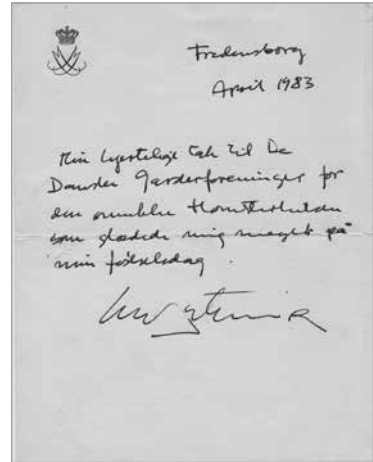 Fredensborg
April 1983
Min hjertelige Tak til De
Danske Garderforeninger for
den smukke Blomsterhilsen
som glædede mig meget på
min fødselsdag.